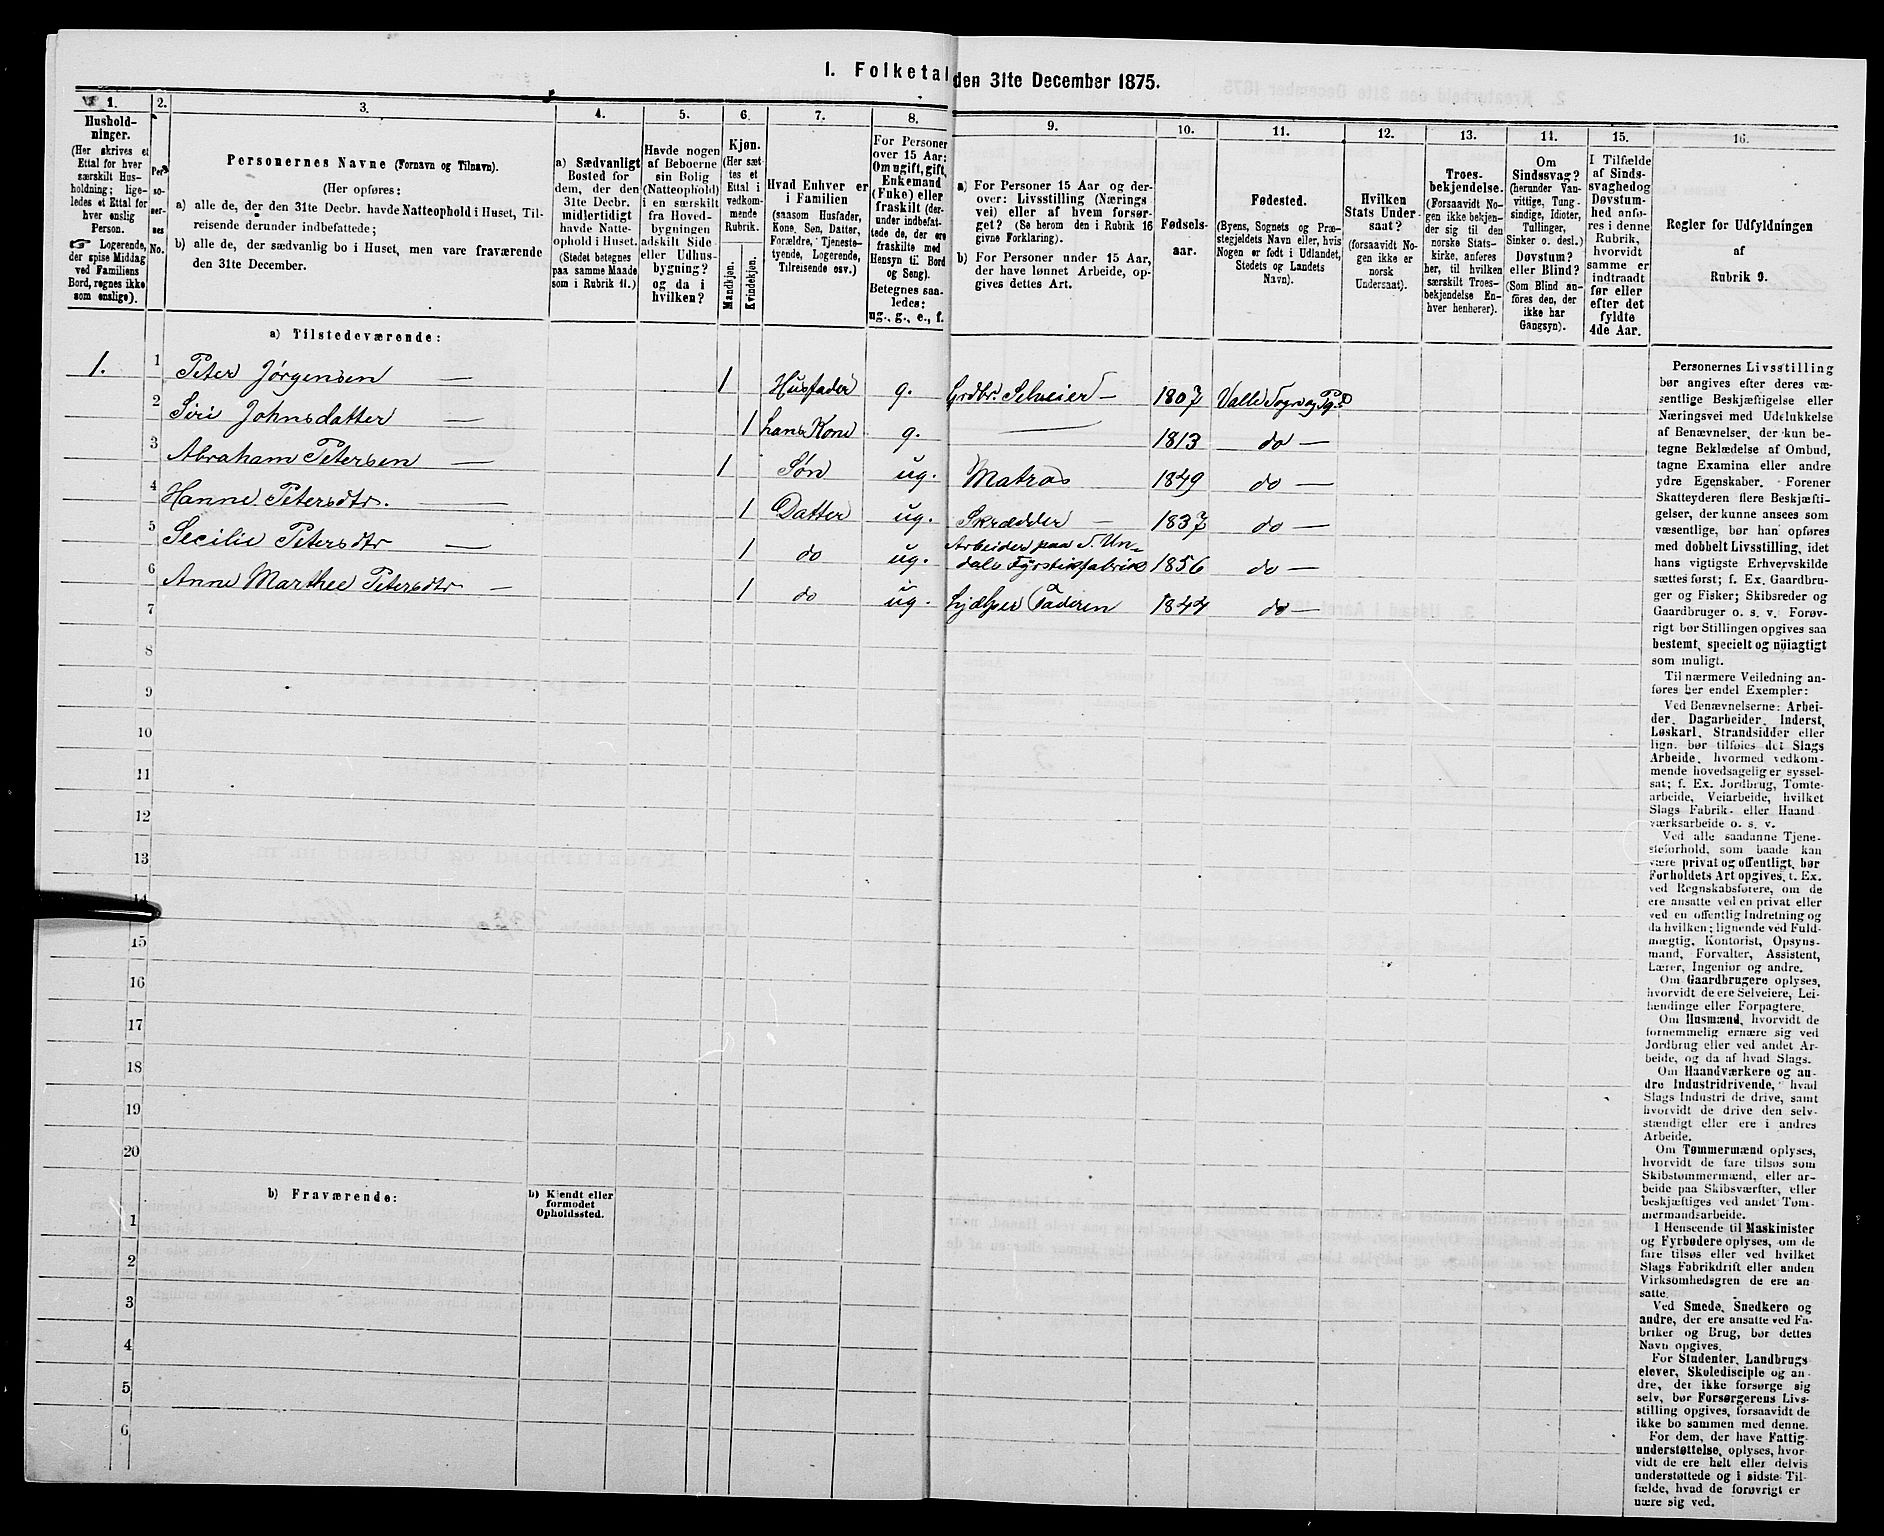 I. Folketal den 31te December 1875.
1.
Hushold-
ninger.
(Her skrives et
Ettal for hver
særskilt Hus-
holdning; lige-
ledes et Ettal for
hver enslig
Person.
☞ Logerende,
der spise Middag
ved Familiens
Bord, regnes ikke
som enslige).
2.
Per-
so-
ner-
nes
No.
3.
Personernes Navne (Fornavn og Tilnavn).
(Her opføres:
a) alle de, der den 31te Decbr. havde Natteophold i Huset, Til-
reisende derunder indbefattede;
b) alle de, der sædvanlig bo i Huset, men vare fraværende
den 31te December.
4.
a) Sædvanligt
Bosted for
dem, der den
31te Decbr.
midlertidigt
havde Natte-
ophold i Huset.
(Stedet betegnes
paa samme Maade
som i Rubrik 11.)
5.
Havde nogen
af Beboerne
sin Bolig
(Natteophold)
i en særskilt
fra Hoved-
bygningen
adskilt Side-
eller Udhus-
bygning?
og da i
hvilken?
6.
Kjøn.
(Her sæt-
tes et
Ettal i
vedkom-
mende
Rubrik.
Mandkjøn.
Kvindekjøn.
7.
Hvad Enhver er
i Familien
(saasom Husfader,
Kone, Søn, Datter,
Forældre, Tjeneste-
tyende, Logerende,
Tilreisende osv.)
8.
For Personer
over 15 Aar:
Om ugift, gift,
Enkemand
(Enke) eller
fraskilt (der-
under indbefat-
tede de, der ere
fraskilte med
Hensyn til Bord
og Seng).
Betegnes saa-
ledes:
ug., g., e., f.
9.
a) For Personer 15 Aar og der-
over: Livsstilling (Nærings-
vei) eller af hvem forsør-
get? (Se herom den i Rubrik 16
givne Forklaring).
b) For Personer under 15 Aar,
der have lønnet Arbeide, op-
gives dettes Art.
10.
Fødsels-
aar.
11.
Fødested.
(Byens, Sognets og Præ-
stegjeldets Navn eller, hvis
Nogen er født i Udlandet,
Stedets og Landets
Navn).
12.
Hvilken
Stats Under-
saat?
(forsaavidt No-
gen ikke er
norsk
Undersaat).
13.
Troes-
bekjendelse.
(Forsaavidt No-
gen ikke bekjen-
der sig til den
norske Stats-
kirke, anføres
her, til hvilken
særskilt Troes-
bekjendelse En-
hver henhører).
14.
Om
Sindssvag?
(herunder Van-
vittige, Tung-
sindige, Idioter,
Tullinger,
Sinker o. desl.)
Døvstum?
eller Blind?
(Som Blind an-
føres den, der
ikke har
Gangsyn).
15.
I Tilfælde
af Sinds-
svaghed og
Døvstum-
hed anfø-
res i denne
Rubrik,
hvorvidt
samme er
indtraadt
før eller
efter det
fyldte
4de Aar.
16.
Regler for Udfyldningen
af
Rubrik 9.
a) Tilstedeværende:
1. 1 Peter Jørgensen — 1 Husfader g. Grdbr. Selveier — 1807 Valle Sogn og Pg.
2 Siri Johnsdatter — 1 hans Kone g. — 1813 do —
3 Abraham Petersen — 1 Søn ug. Matros 1849 do —
4 Hanne Petersdtr. — 1 Datter ug. Skrædder — 1837 do —
5 Secilie Petersdtr — 1 do ug. Arbeider paa S. Un-
dals Fyrstikfabrik 1856 do —
6 Anne Marthee Petersdtr — 1 do ug. hjælper Faderen 1844 do —
7
8
9
10
11
12
13
14
15
16
17
18
19
20
b) Fraværende:
b) Kjendt eller
formodet
Opholdssted.
1
2
3
4
5
6
Personernes Livsstilling
bør angives efter deres væ-
sentlige Beskjæftigelse eller
Næringsvei med Udelukkelse
af Benævnelser, der kun be-
tegne Beklædelse af Ombud,
tagne Examina eller andre
ydre Egenskaber. Forener
Skatteyderen flere Beskjæfti-
gelser, der kunne ansees som
væsentlige, bør han opføres
med dobbelt Livsstilling, idet
hans vigtigste Erhvervskilde
sættes først; f. Ex. Gaardbru-
ger og Fisker; Skibsreder og
Gaardbruger o. s. v. Forøv-
rigt bør Stillingen opgives saa
bestemt, specielt og nøiagtigt
som muligt.
Til nærmere Veiledning an-
føres her endel Exempler:
Ved Benævnelserne: Arbei-
der, Dagarbeider, Inderst,
Løskarl, Strandsidder eller
lign. bør tilføies det Slags
Arbeide, hvormed vedkom-
mende hovedsagelig er syssel-
sat; f. Ex. Jordbrug, Tomte-
arbeide, Veiarbeide, hvilket
Slags Fabrik- eller Haand
værksarbeide o. s. v.
Ved alle saadanne Tjene-
steforhold, som baade kan
være privat og offentligt, bør
Forholdets Art opgives, t. Ex.
ved Regnskabsførere, om de
ere ansatte ved en privat eller
ved en offentlig Indretning og
da hvilken; lignende ved Fuld-
mægtig, Kontorist, Opsyns-
mand, Forvalter, Assistent,
Lærer, Ingeniør og andre.
Om Gaardbrugere oplyses,
hvorvidt de ere Selveiere, Lei-
lændinge eller Forpagtere.
Om Husmænd, hvorvidt de
fornemmelig ernære sig ved
Jordbrug eller ved andet Ar-
beide, og da af hvad Slags.
Om Haandværkere og an-
dre Industridrivende, hvad
Slags Industri de drive, samt
hvorvidt de drive den selv-
stændigt eller ere i andres
Arbeide.
Om Tømmermænd oplyses,
hvorvidt de fare tilsøs som
Skibstømmermænd, eller ar-
beide paa Skibsværfter, eller
beskjæftiges ved andet Tøm-
mermandsarbeide.
I Henseende til Maskinister
og Fyrbødere oplyses, om de
fare tilsøs eller ved hvilket
Slags Fabrikdrift eller anden
Virksomhedsgren de ere an-
satte.
Ved Smede, Snedkere og
andre, der ere ansatte ved Fa-
briker og Brug, bør dettes
Navn opgives.
For Studenter, Landbrugs-
elever, Skoledisciple og an-
dre, der ikke forsørge sig
selv, bør Forsørgerens Livs-
stilling opgives, forsaavidt de
ikke bo sammen med denne.
For dem, der have Fattig-
understøttelse, oplyses, hvor-
vidt de ere helt eller delvis
understøttede og i sidste Til-
fælde, hvad de forøvrigt er
nære sig ved.